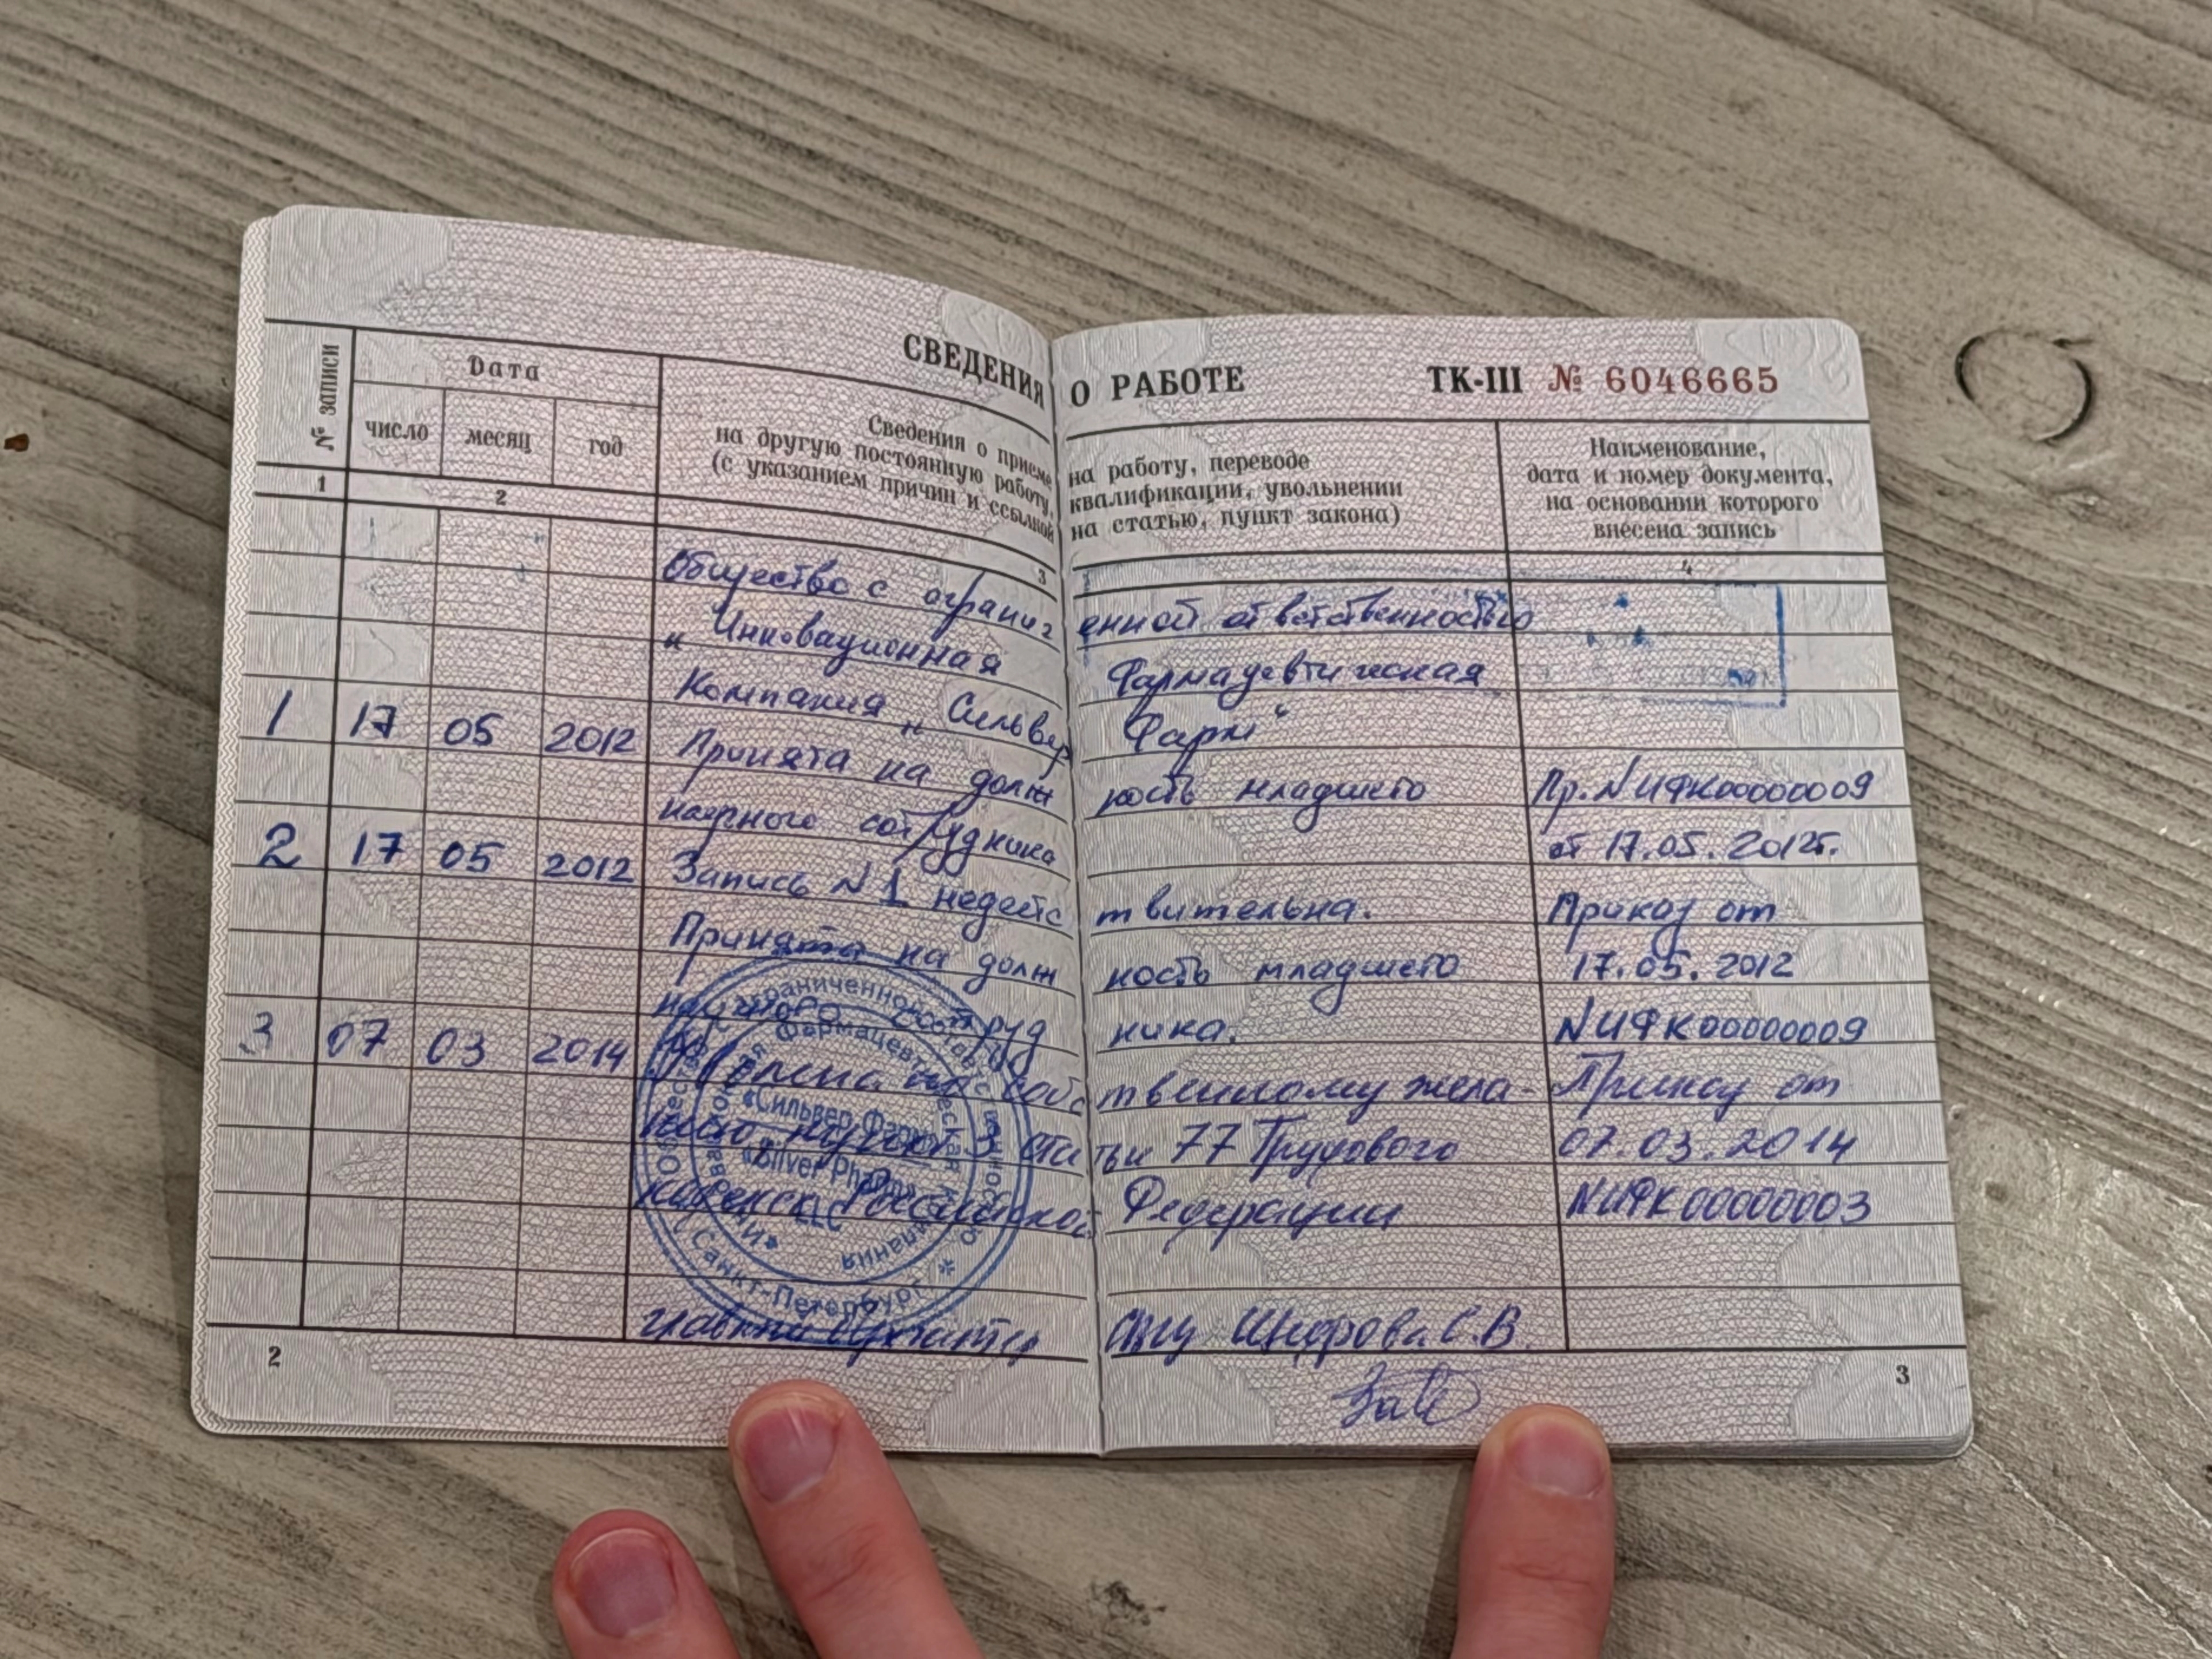 СВЕДЕНИЯ О РАБОТЕ ТК-III № 6046665
№ записи
Дата
число месяц год
Сведения о приеме на работу, переводе
на другую постоянную работу, квалификации, увольнении
(с указанием причин и ссылкой на статью, пункт закона)
Наименование,
дата и номер документа,
на основании которого
внесена запись
1 2 3 4
Общество с ограниченной ответственностью
"Инновационная Фармацевтическая
Компания "Сильвер Фарм"
1 17 05 2012 Принята на должность младшего Пр. N ИФК00000009
научного сотрудника от 17.05.2012г.
2 17 05 2012 Запись N 1 недействительна. Приказ от
Принята на должность младшего 17.05.2012
научного сотрудника. N ИФК00000009
3 07 03 2014 Уволена по собственному жела- Приказ от
нию пункт 3 статьи 77 Трудового 07.03.2014
кодекса Российской Федерации N ИФК00000003
главный бухгалтер С.В
«Сильвер Фарм»
«Silver Pharm»
LLC
Фармацевтическая компания
Санкт-Петербург
2 3